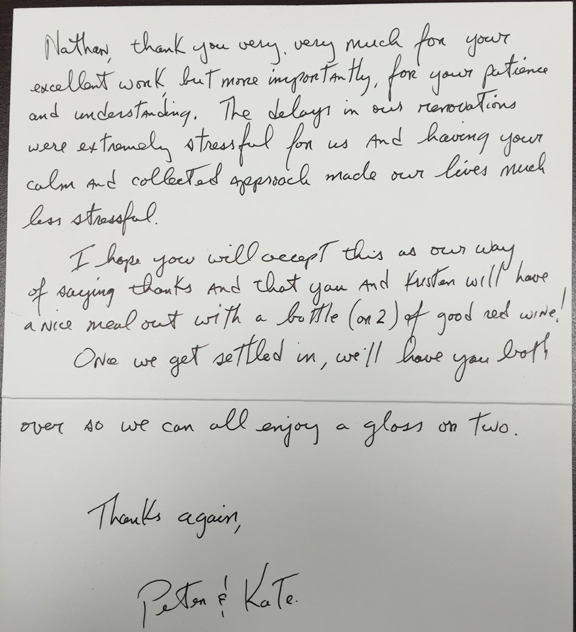 Nathan, thank you very, very much for your
excellent work but more importantly, for your patience
and understanding. The delays in our renovations
were extremely stressful for us and having your
calm and collected approach made our lives much
less stressful.
I hope you will accept this as our way
of saying thanks and that you and Kristen will have
a nice meal out with a bottle (or 2) of good red wine!
Once we get settled in, we'll have you both
over so we can all enjoy a glass or two.
Thanks again,
Peter & Kate.